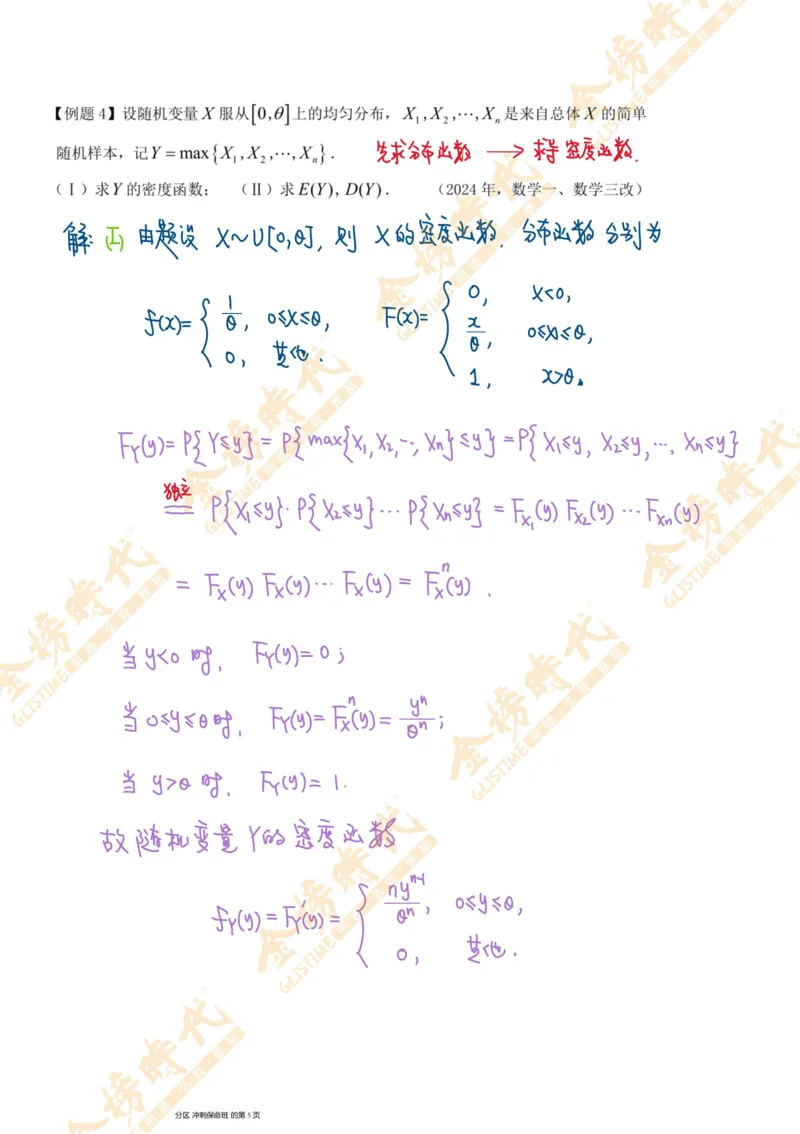 【例题 4】设随机变量 X 服从[0,θ]上的均匀分布，X₁,X₂,⋯,Xₙ 是来自总体 X 的简单
随机样本，记 Y = max{X₁,X₂,⋯,Xₙ}. 先求分布函数 → 求导 密度函数.
(Ⅰ) 求 Y 的密度函数； (Ⅱ) 求 E(Y), D(Y). (2024 年，数学一、数学三改)
解: (I) 由题设 X~U[0,θ], 则 X的密度函数. 分布函数 分别为
f(x)= { 1/θ, 0≤x≤θ, 0, 其他.
F(x)= { 0, x<0, x/θ, 0≤x≤θ, 1, x>θ.
F_Y(y)= P{Y≤y} = P{max{X₁,X₂,⋯,Xₙ}≤y} = P{X₁≤y, X₂≤y, ⋯, Xₙ≤y}
独立
= P{X₁≤y}·P{X₂≤y}⋯P{Xₙ≤y} = F_X₁(y) F_X₂(y) ⋯ F_Xₙ(y)
= F_X(y) F_X(y) ⋯ F_X(y) = F_X^n(y).
当 y<0 时, F_Y(y)=0;
当 0≤y≤θ时, F_Y(y)= F_X^n(y)= y^n/θ^n;
当 y>θ 时, F_Y(y)= 1.
故随机变量 Y的密度函数
f_Y(y) = F_Y'(y) = { ny^(n-1)/θ^n, 0≤y≤θ, 0, 其他.
分区 冲刺保命班 的第 5 页
金榜時代
GLISTIME